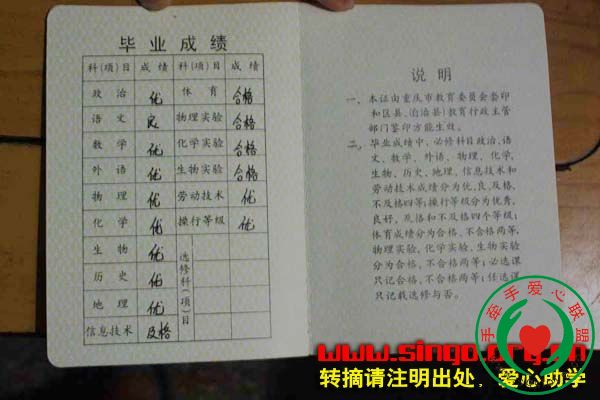 毕业成绩
科(项)目 成绩 科(项)目 成绩
政治 优 体育 合格
语文 良 物理实验 合格
数学 优 化学实验 合格
外语 优 生物实验 合格
物理 优 劳动技术 优
化学 优 操行等级 优
生物 优
历史 优
地理 优
信息技术 及格
选修科(项)目
说明
一、本证由重庆市教育委员会套印
和区县、(自治县)教育行政主管
部门签印方能生效。
二、毕业成绩中，必修科目政治、语
文、数学、外语、物理、化学、
生物、历史、地理、信息技术和
劳动技术成绩分为优、良、及格、
不及格四等；操行等级分为优秀、
良好、及格和不及格四个等级；
体育成绩分为合格、不合格两等，
物理实验、化学实验、生物实验
分为合格、不合格两等；必选课
只记合格、不合格两等；任选课
只记载选修与否。
手牵手爱心联盟
www.singo.org.cn
转摘请注明出处，爱心助学